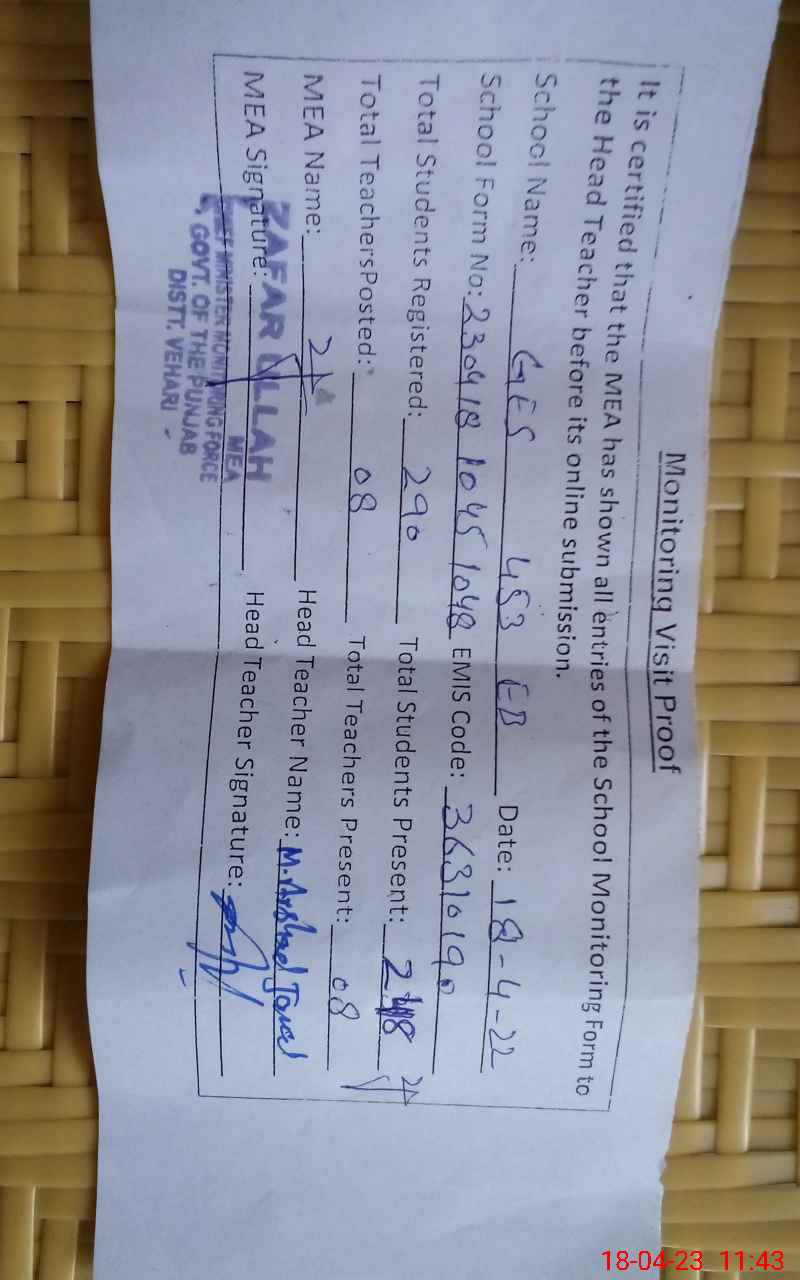 Monitoring Visit Proof
It is certified that the MEA has shown all entries of the School Monitoring Form to
the Head Teacher before its online submission.
School Name: GES 453 EB Date: 18-4-22
School Form No: 230418 1045 1048 EMIS Code: 36310190
Total Students Registered: 290 Total Students Present: 248
Total TeachersPosted: 08 Total Teachers Present: 08
MEA Name: Head Teacher Name: M. Arshad
MEA Signature: Head Teacher Signature:
ZAFAR ULLAH
MEA
CHIEF MINISTER MONITORING FORCE
GOVT. OF THE PUNJAB
DISTT. VEHARI
18-04-23 11:43